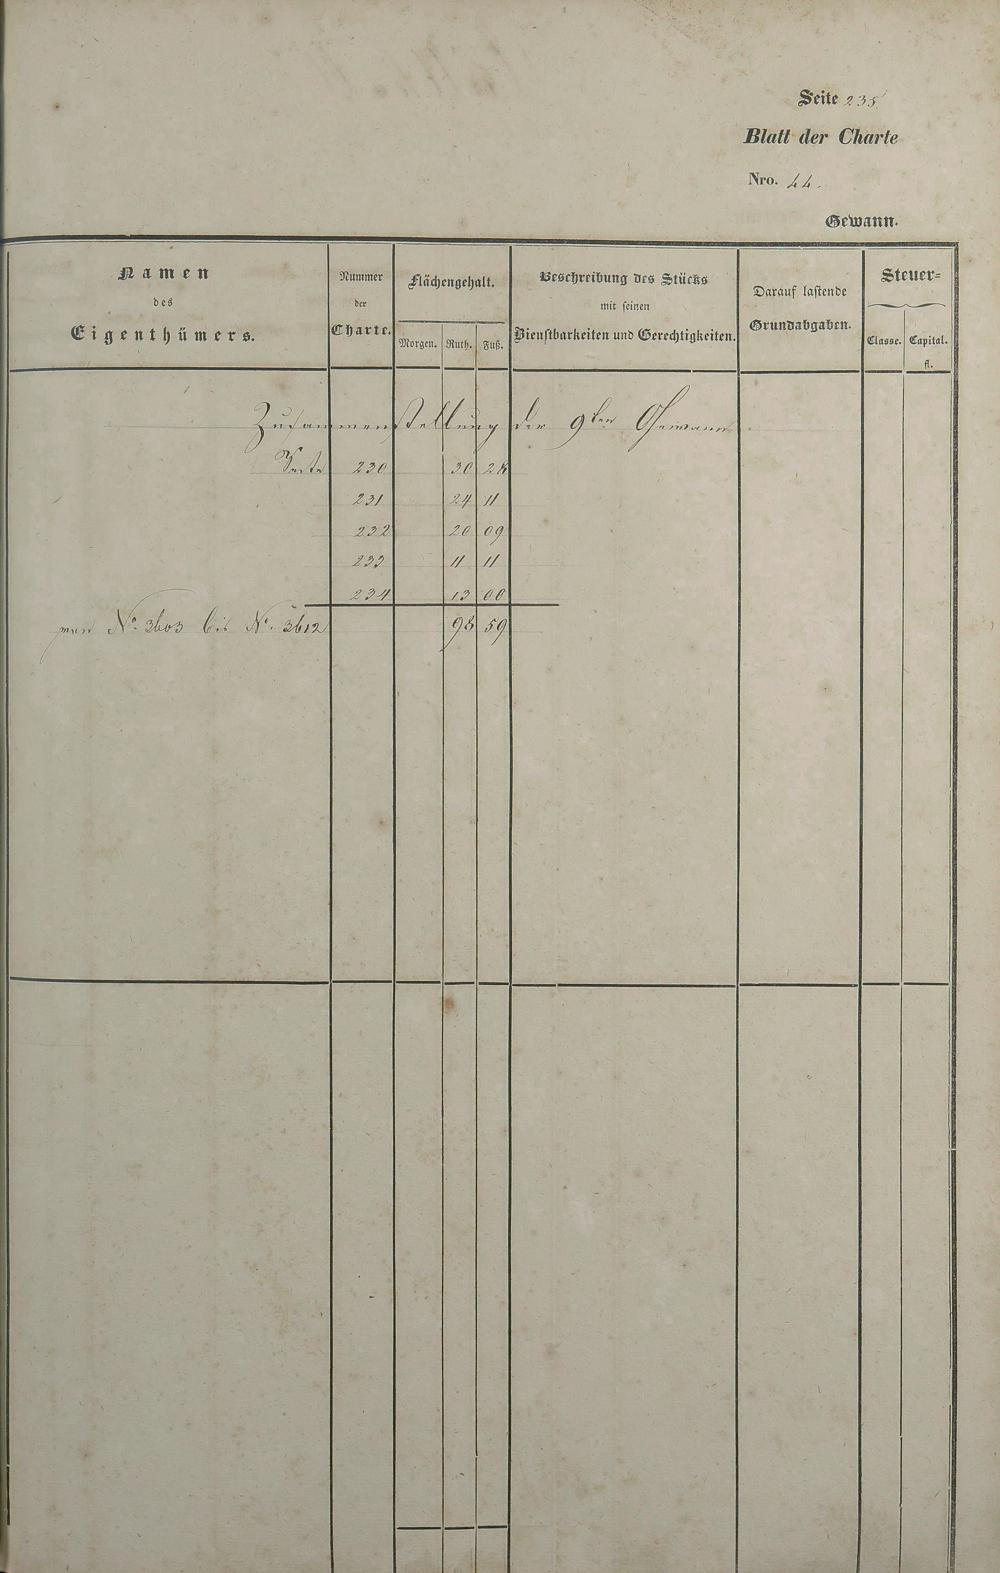 Seite 235
Blatt der Charte
Nro. 44.
Gewann.
Namen des Eigenthümers.
Nummer der Charte.
Flächengehalt.
Morgen. Ruth. Fuß.
Beschreibung des Stücks mit seinen Dienstbarkeiten und Gerechtigkeiten.
Darauf lastende Grundabgaben.
Steuer-
Classe. Capital.
fl.
Zusammenstellung der 9ten Gewann
Seite 230 30 28
231 24 11
232 20 09
233 11 11
234 13 00
von No. 3603 bis No. 3612 98 59